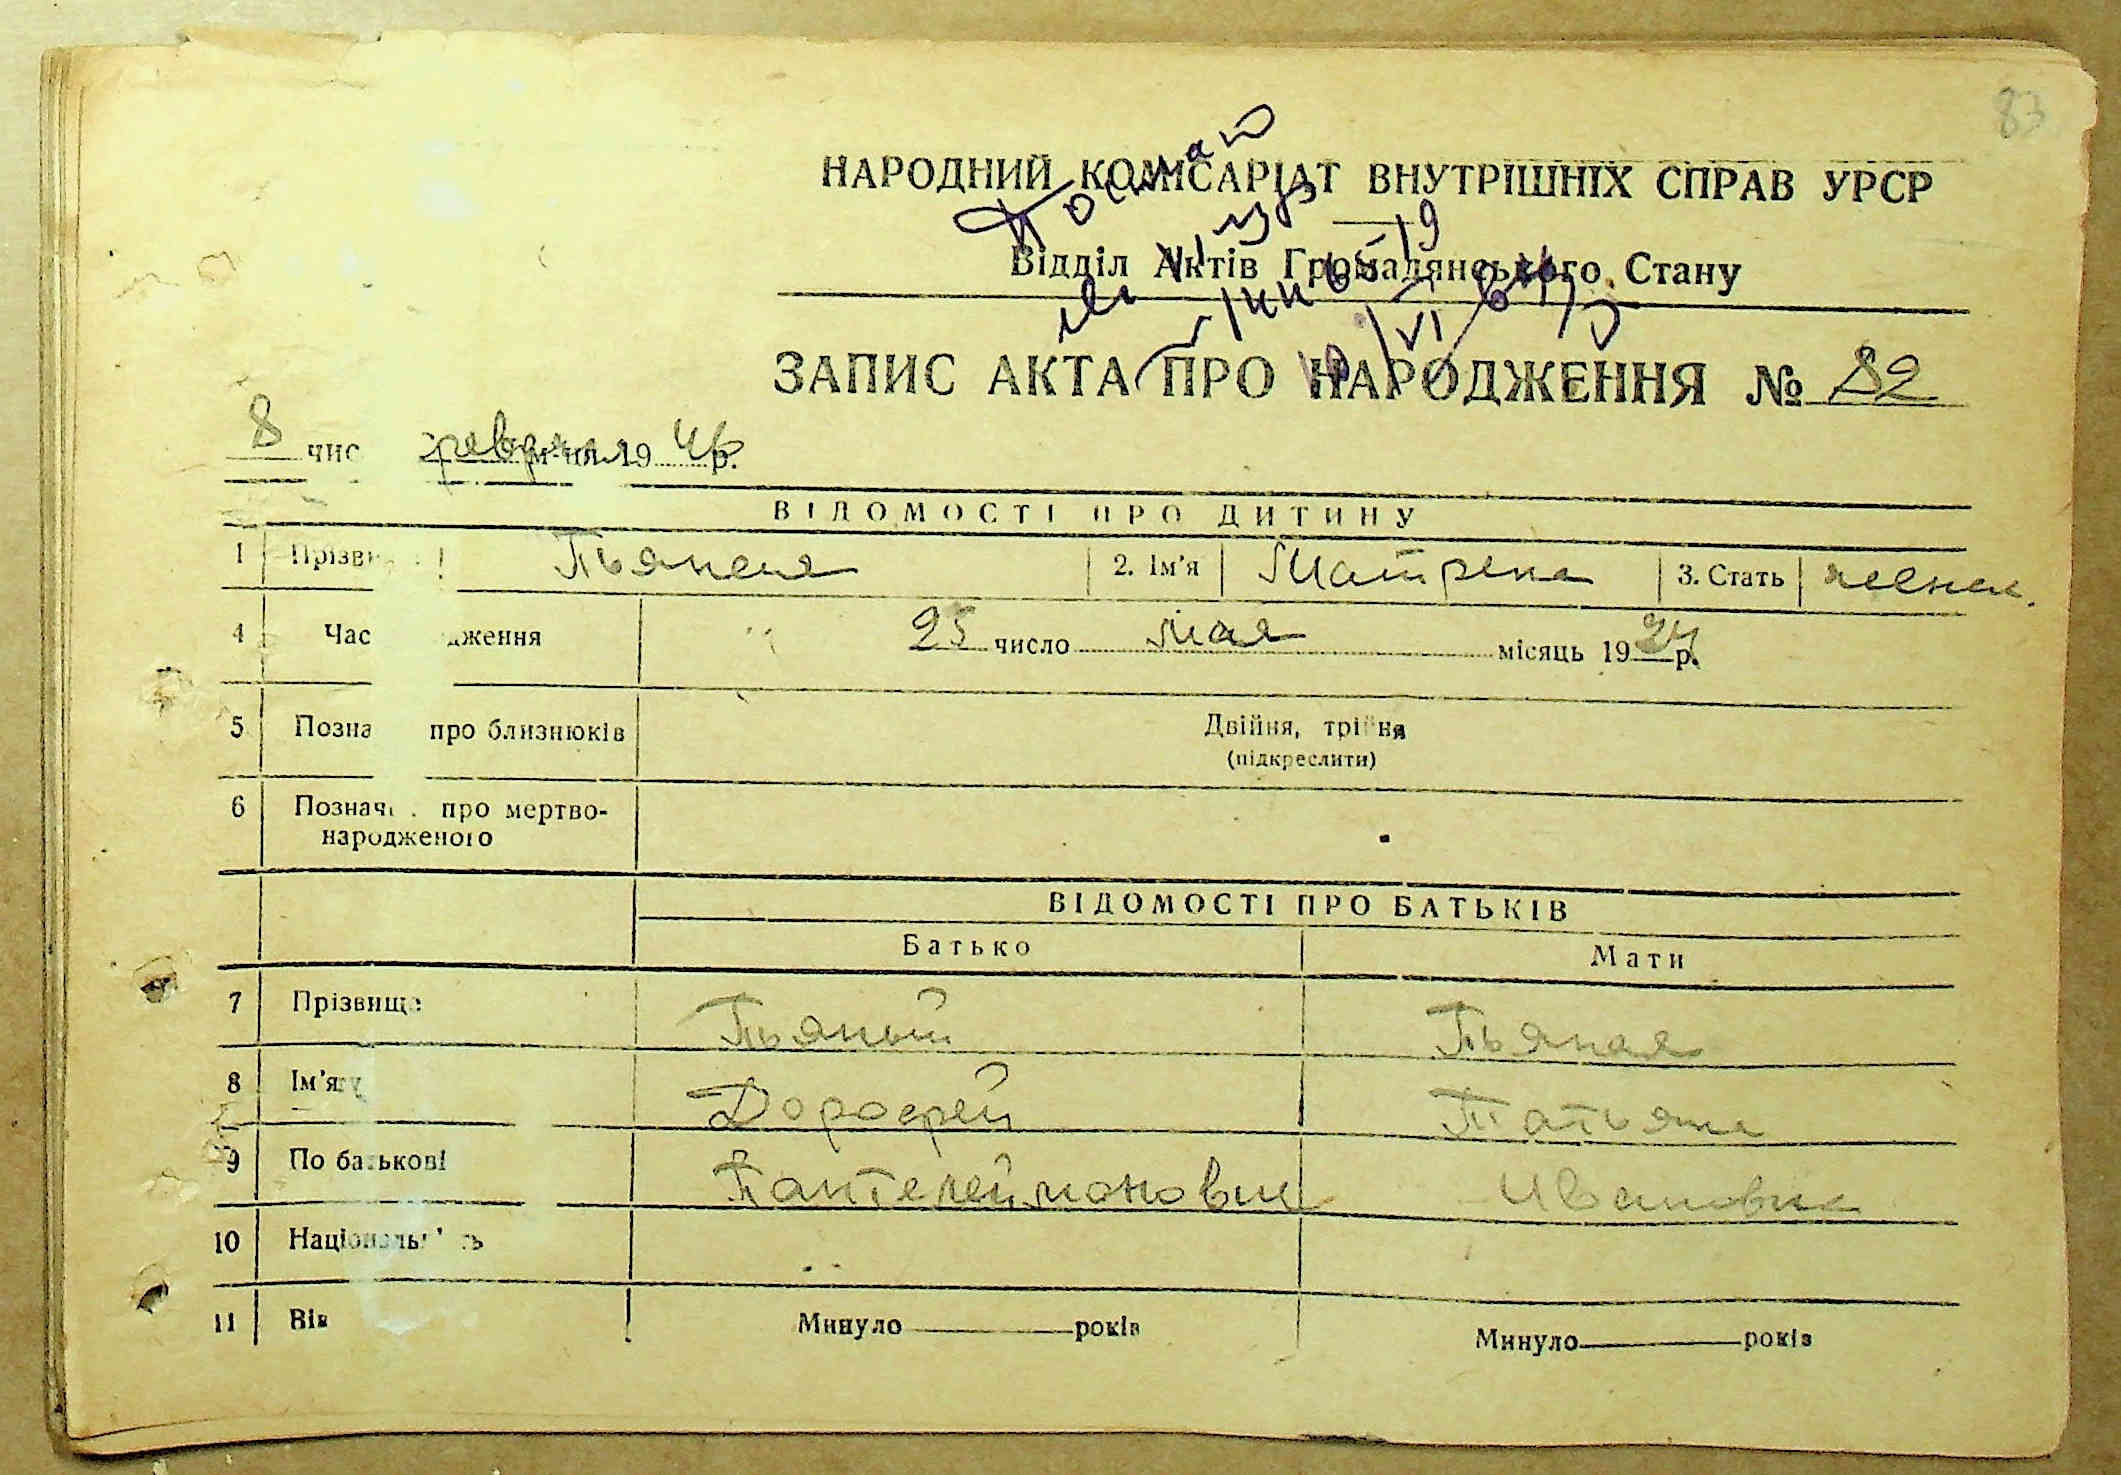 83
НАРОДНИЙ КОМІСАРІАТ ВНУТРІШНІХ СПРАВ УРСР
Відділ Актів Громадянського Стану
ЗАПИС АКТА ПРО НАРОДЖЕННЯ № 82
8 чис февраля м-ця 19 46 р.
ВІДОМОСТІ ПРО ДИТИНУ
1 Прізви Пьяная 2. Ім'я Матрена 3. Стать женск.
4 Час дження 25 число мая місяць 19 24 р.
5 Позна про близнюків Двійня, трійня
(підкреслити)
6 Познач про мертво-
народженого
ВІДОМОСТІ ПРО БАТЬКІВ
Батько Мати
7 Прізвище Пьяный Пьяная
8 Ім'я Дорофей Татьяна
9 По батькові Пантелеймонович Ивановна
10 Національність
11 Вік Минуло років Минуло років